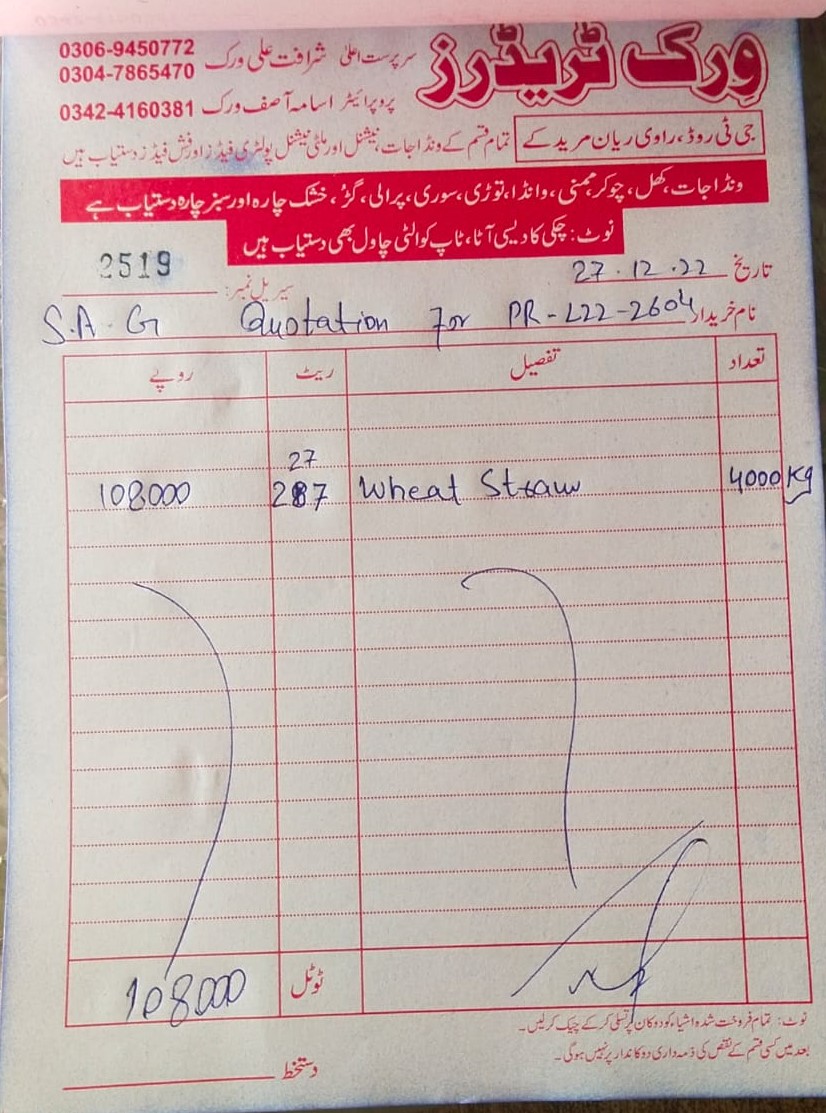 ورک ٹریڈرز
سرپرست اعلیٰ شرافت علی ورک 0306-9450772
0304-7865470
پروپرائیٹر اسامہ آصف ورک 0342-4160381
جی ٹی روڈ، راوی ریان مریدکے تمام قسم کے ونڈا جات، نیشنل اور ملٹی نیشنل پولٹری فیڈز اور فش فیڈز دستیاب ہیں
ونڈا جات، کھل، چوکر، ممنی، وانڈا، توڑی، سوری، پرالی، گڑ، خشک چارہ اور سبز چارہ دستیاب ہے
نوٹ: چکی کا دیسی آٹا، ٹاپ کوالٹی چاول بھی دستیاب ہیں
تاریخ 27.12.22
سیریل نمبر: 2519
نام خریدار S.A.G Quotation For PR-L22-2604
تعداد تفصیل ریٹ روپے
27
4000 Kg Wheat Straw 287 108000
ٹوٹل 108000
نوٹ: تمام فروخت شدہ اشیاء کو دوکان پر تسلی کر کے چیک کر لیں۔
بعد میں کسی قسم کے نقص کی ذمہ داری دوکاندار پر نہیں ہو گی۔
دستخط